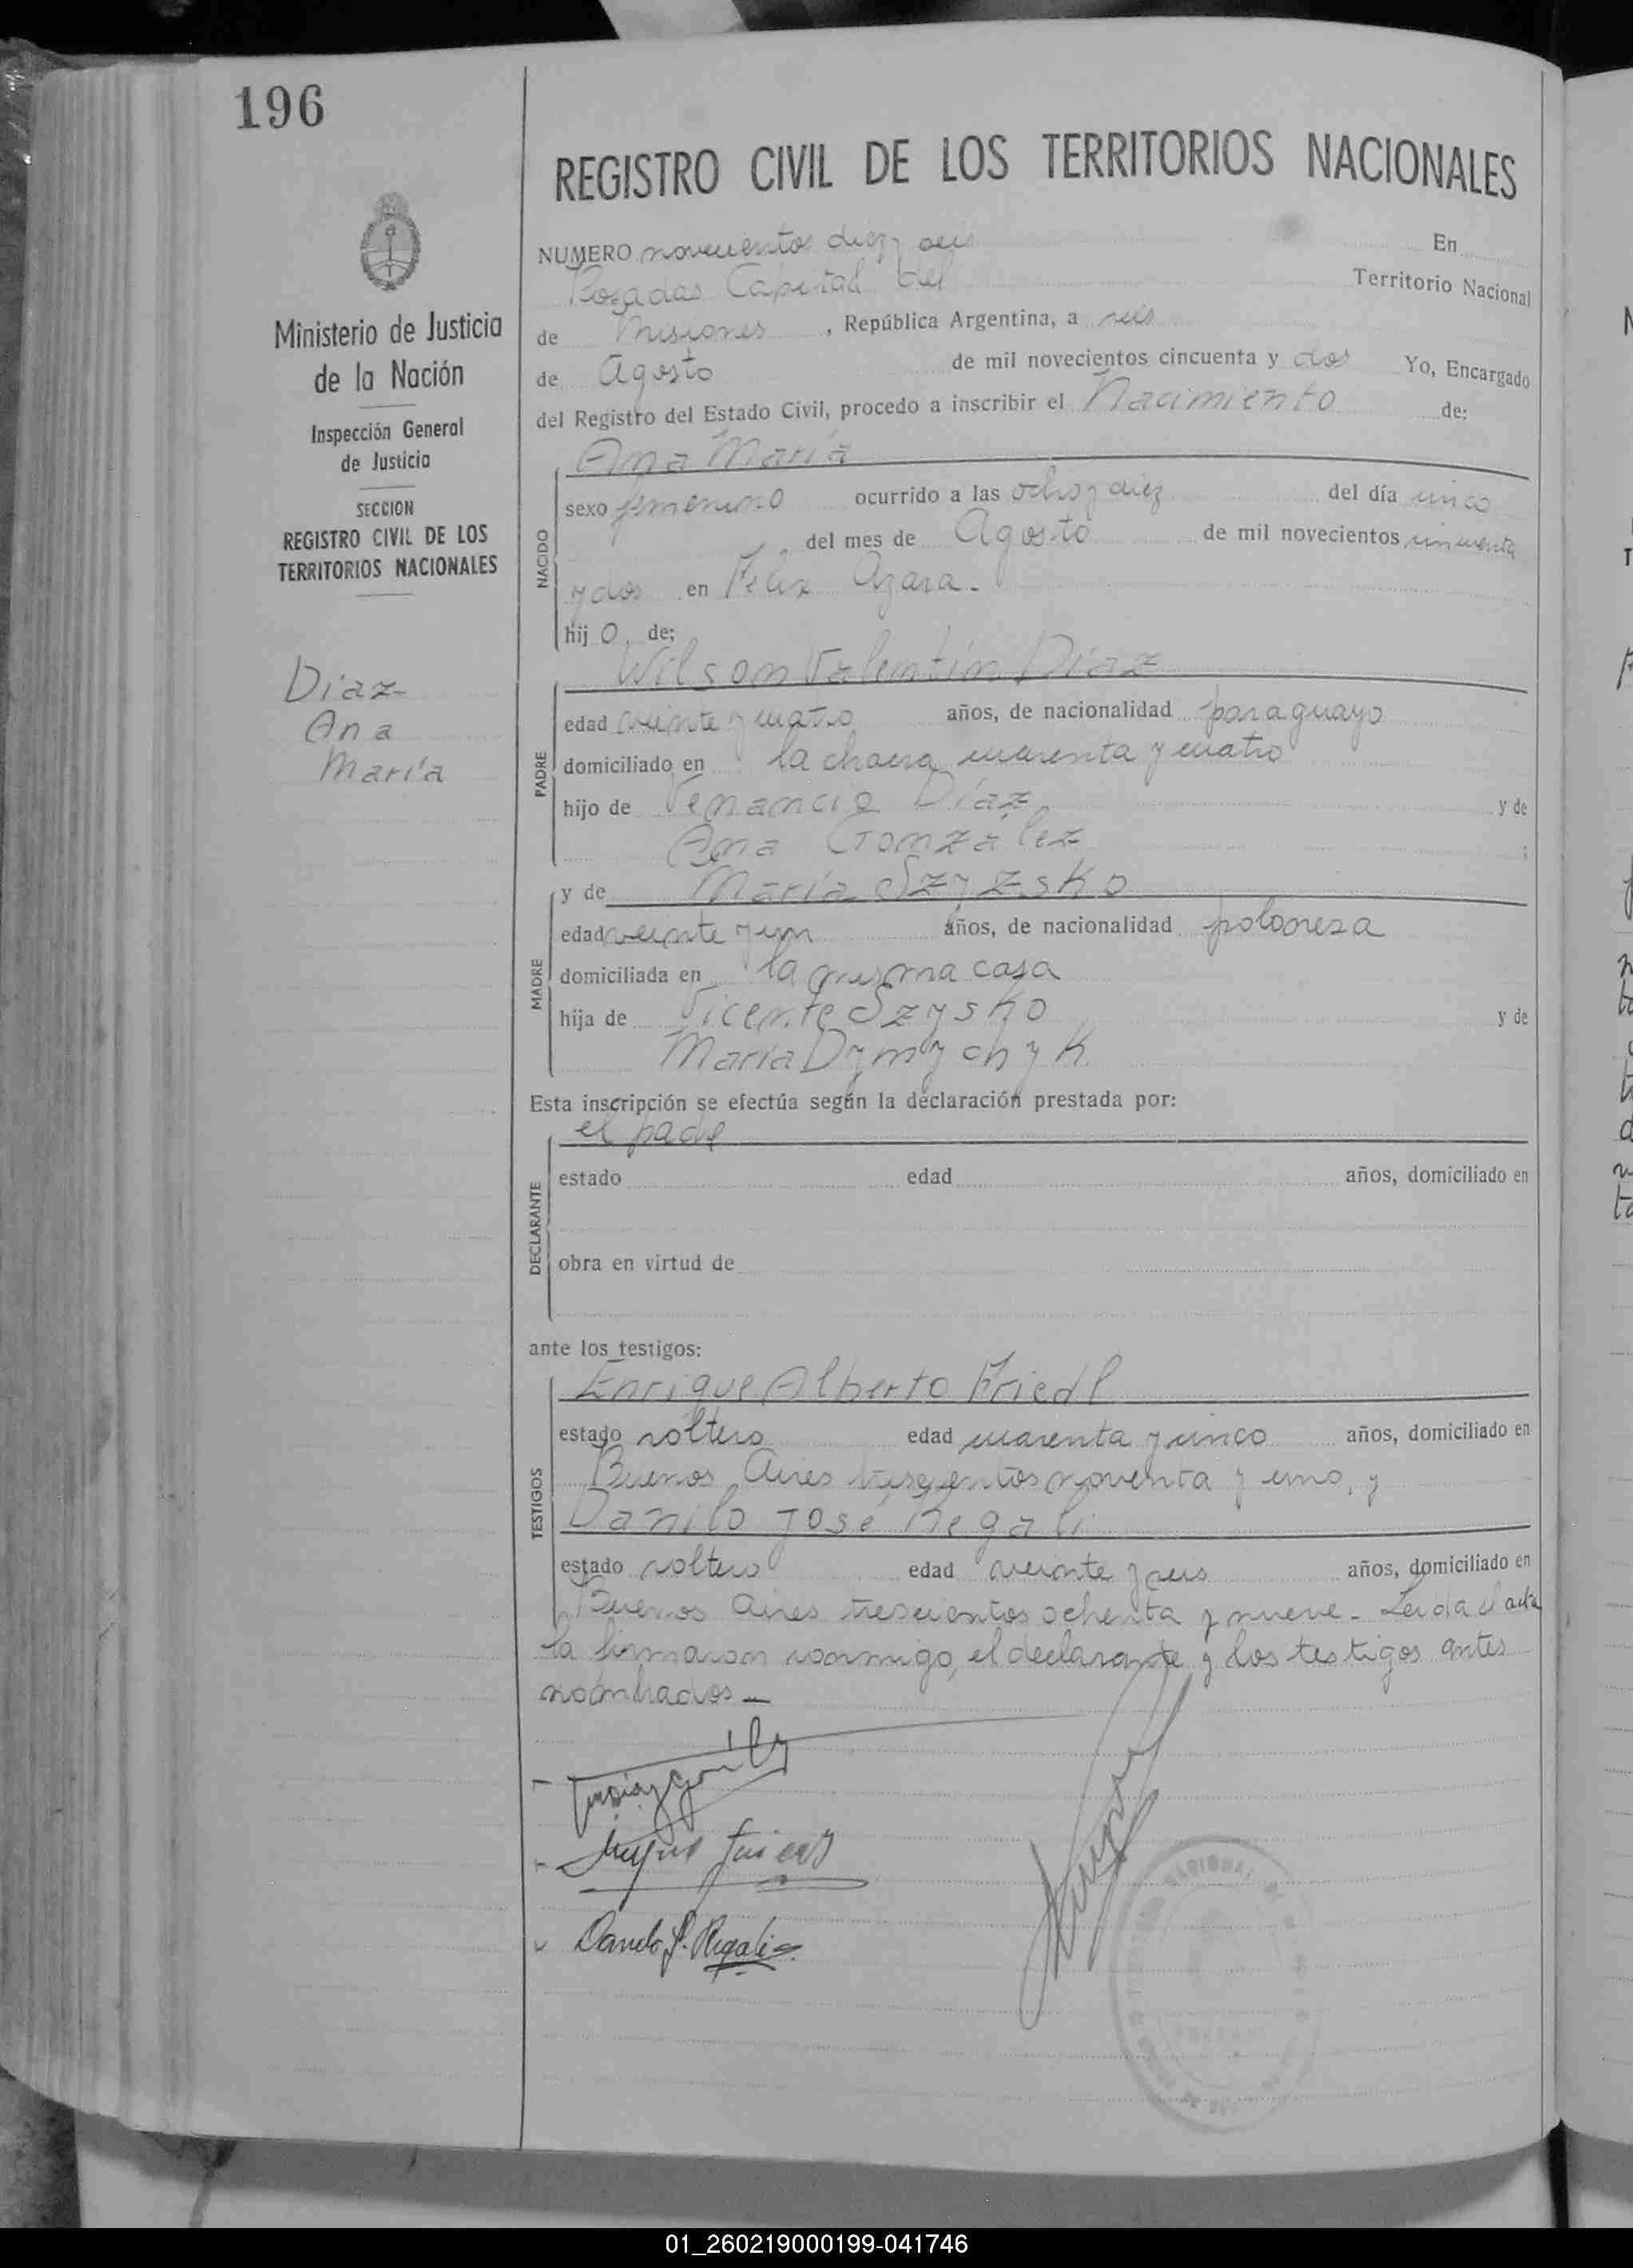 196
REGISTRO CIVIL DE LOS TERRITORIOS NACIONALES
Ministerio de Justicia
de la Nación
Inspección General
de Justicia
SECCION
REGISTRO CIVIL DE LOS
TERRITORIOS NACIONALES
Díaz
Ana
María
NUMERO novecientos diez y seis En
Posadas Capital del Territorio Nacional
de Misiones, República Argentina, a seis
de Agosto de mil novecientos cincuenta y dos Yo, Encargado
del Registro del Estado Civil, procedo a inscribir el Nacimiento de:
NACIDO
Ana María
sexo femenino ocurrido a las ocho y diez del día cinco
del mes de Agosto de mil novecientos cincuenta
y dos en Félix Azara-
hijo de:
PADRE
Wilson Valentín Díaz
edad veinte y cuatro años, de nacionalidad paraguayo
domiciliado en la chacra cuarenta y cuatro
hijo de Venancio Díaz y de
Ana González ;
MADRE
y de María Szyzsko
edad veinte y un años, de nacionalidad polonesa
domiciliada en la misma casa
hija de Vicente Szysko y de
María Dymychyk
Esta inscripción se efectúa según la declaración prestada por:
DECLARANTE
el padre
estado edad años, domiciliado en
obra en virtud de
ante los testigos:
TESTIGOS
Enrique Alberto Friedl
estado soltero edad cuarenta y cinco años, domiciliado en
Buenos Aires trescientos noventa y uno, y
Danilo José Regali
estado soltero edad veinte y seis años, domiciliado en
Buenos Aires trescientos ochenta y nueve- Leída el acta
la firmaron conmigo, el declarante y los testigos antes
nombrados-
Danilo J. Regali
01_260219000199-041746